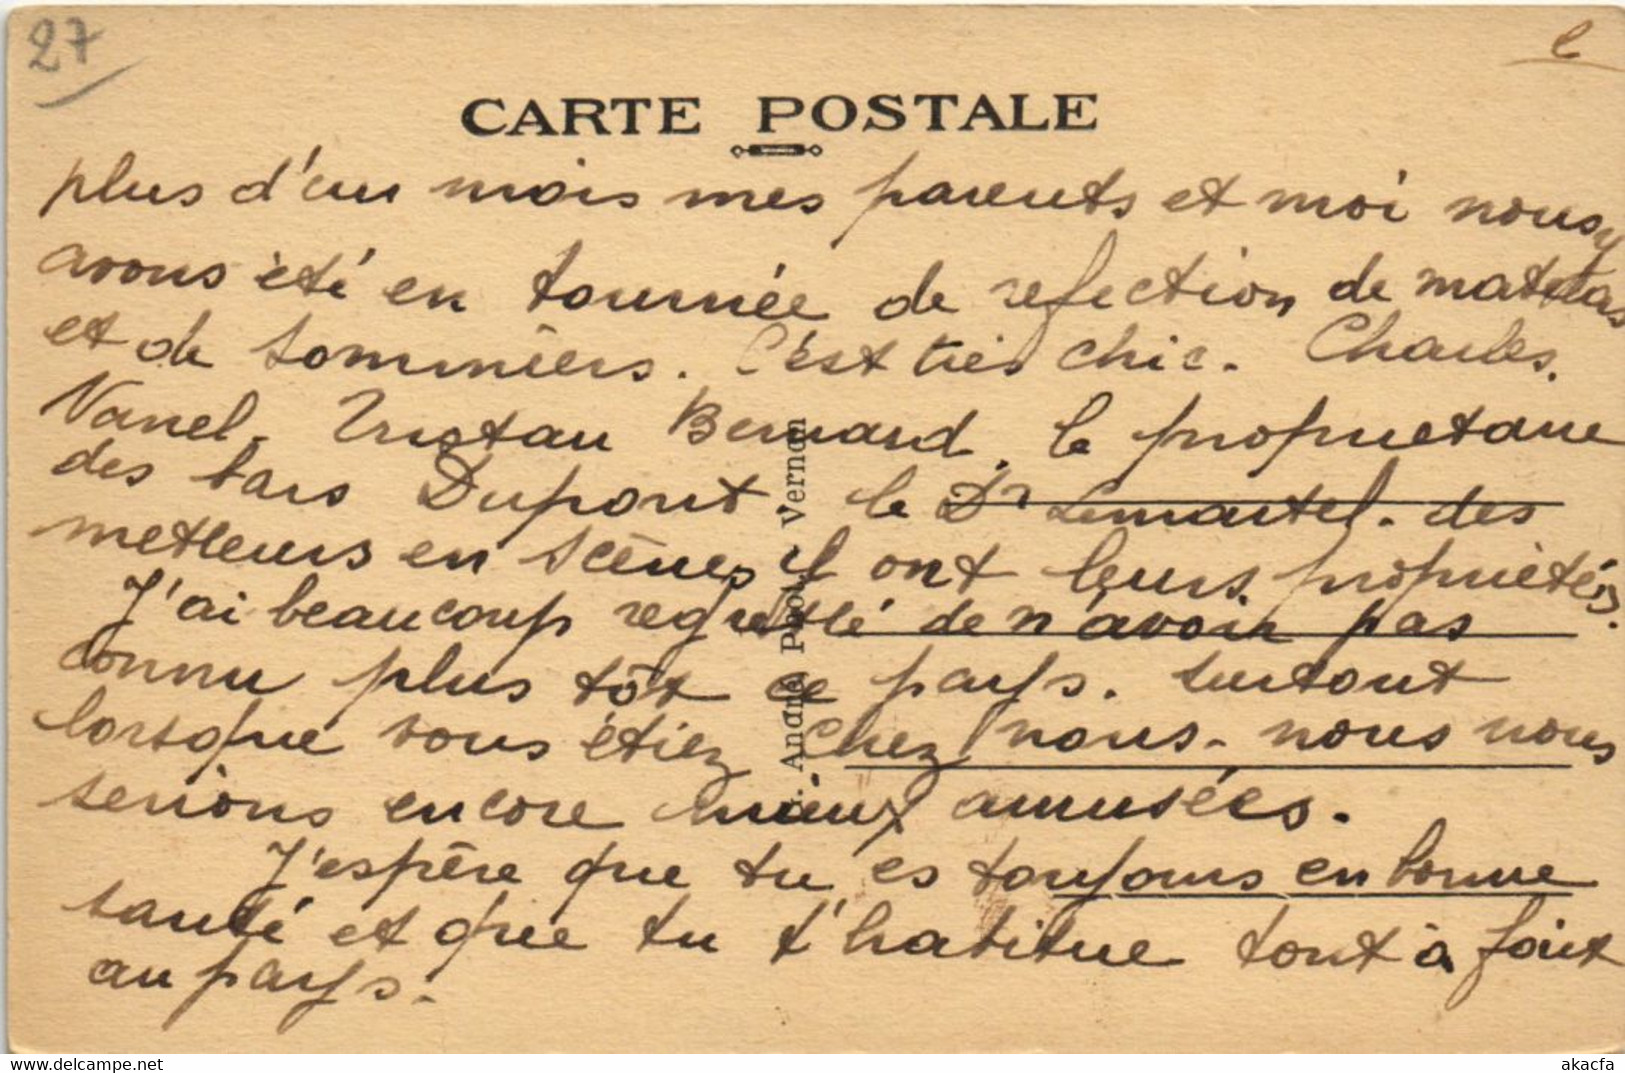 27
CARTE POSTALE
plus d'un mois mes parents et moi nous y
avons été en tournée de refection de matelas
et de sommiers. C'est très chic. Charles.
Vanel. Tristan Bernard. le propriétaire
des bars Dupont. le Dr Lemartel. des
metteurs en scènes y ont leurs propriétés.
J'ai beaucoup regretté de n'avoir pas
connu plus tôt ce pays. surtout
lorsque vous étiez chez nous. nous nous
serions encore mieux amusées.
J'espère que tu es toujours en bonne
santé et que tu t'habitue tout à fait
au pays.
André Phot. Vernon
delcampe.net
akacfa